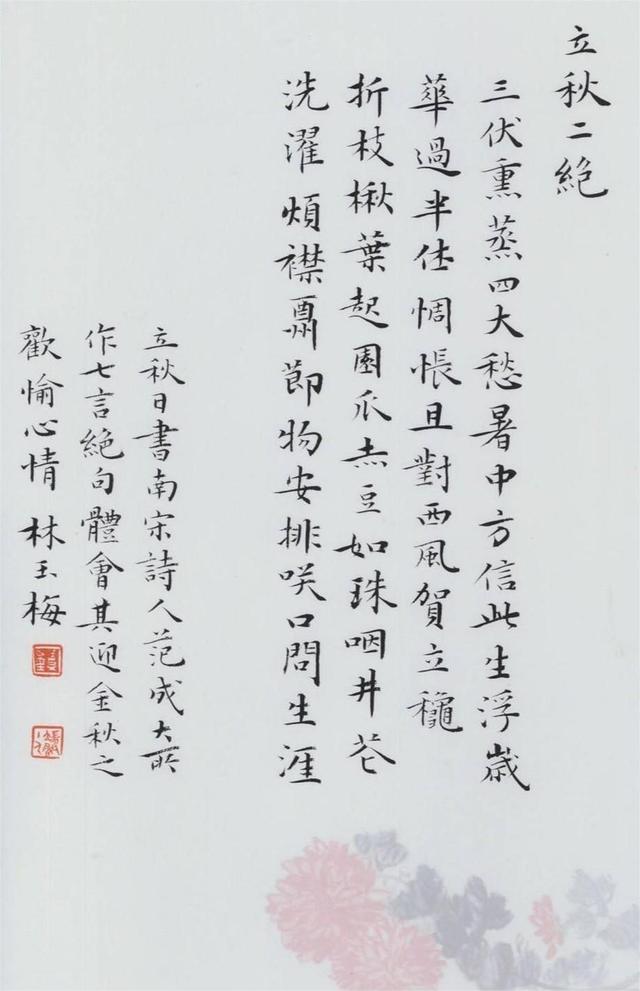 立秋二絶
三伏熏蒸四大愁暑中方信此生浮歳
華過半休惆悵且對西風賀立龝
折枝楸葉起園瓜赤豆如珠咽井花
洗濯煩襟酬節物安排咲口問生涯
立秋日書南宋詩人范成大所
作七言絶句體會其迎金秋之
歡愉心情 林玉梅